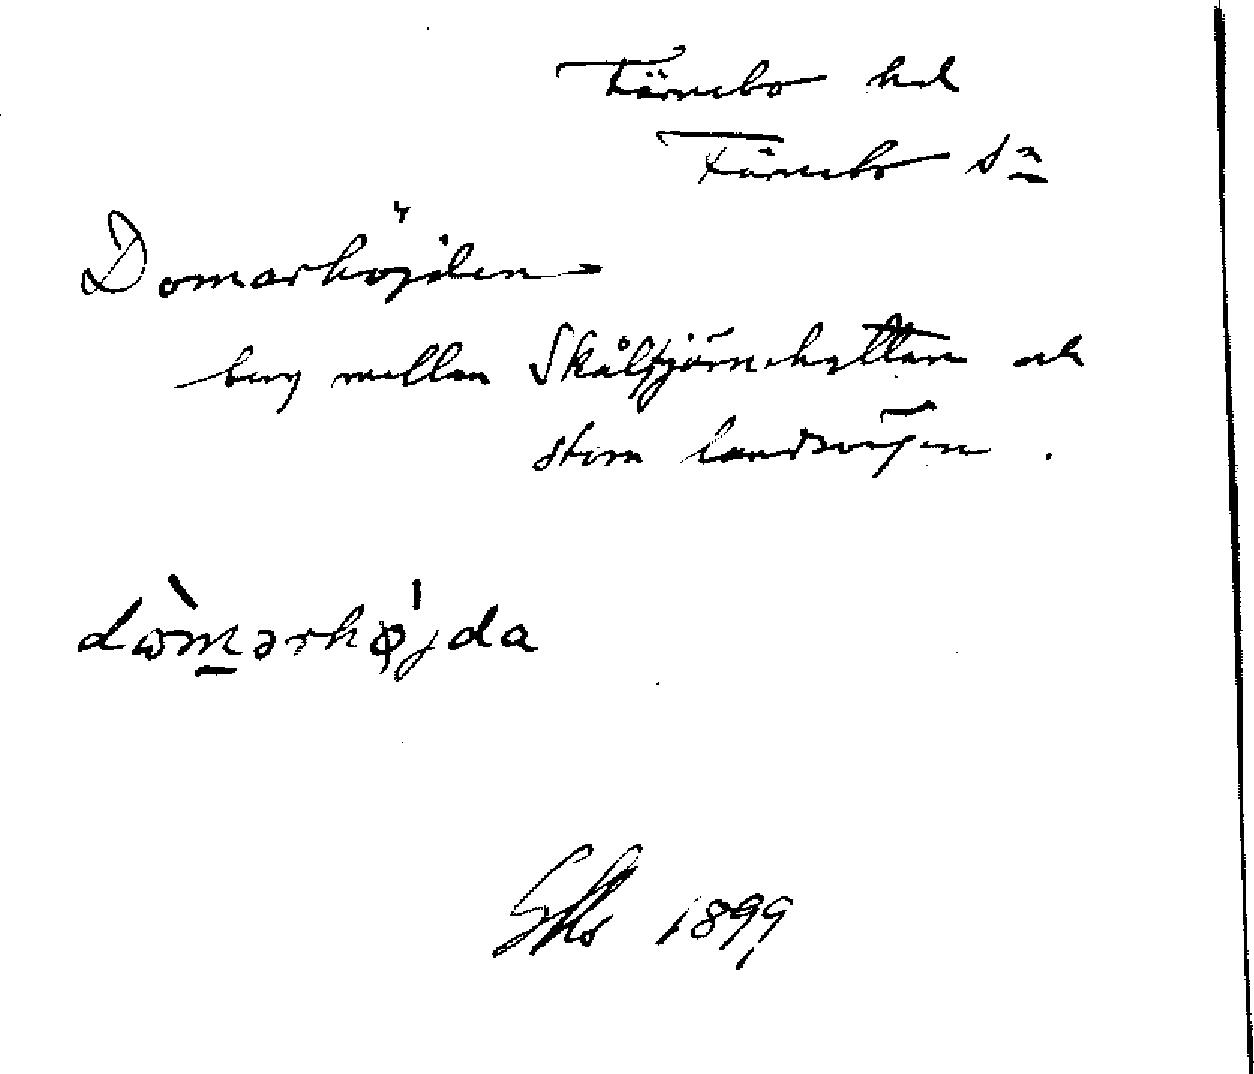 Färnebo hd
Färnebo sn
Domarhöjden
berg mellan Skåltjärnshyttan och
stora landsvägen.
dɷ̀m̲ərhø̍jda
1899